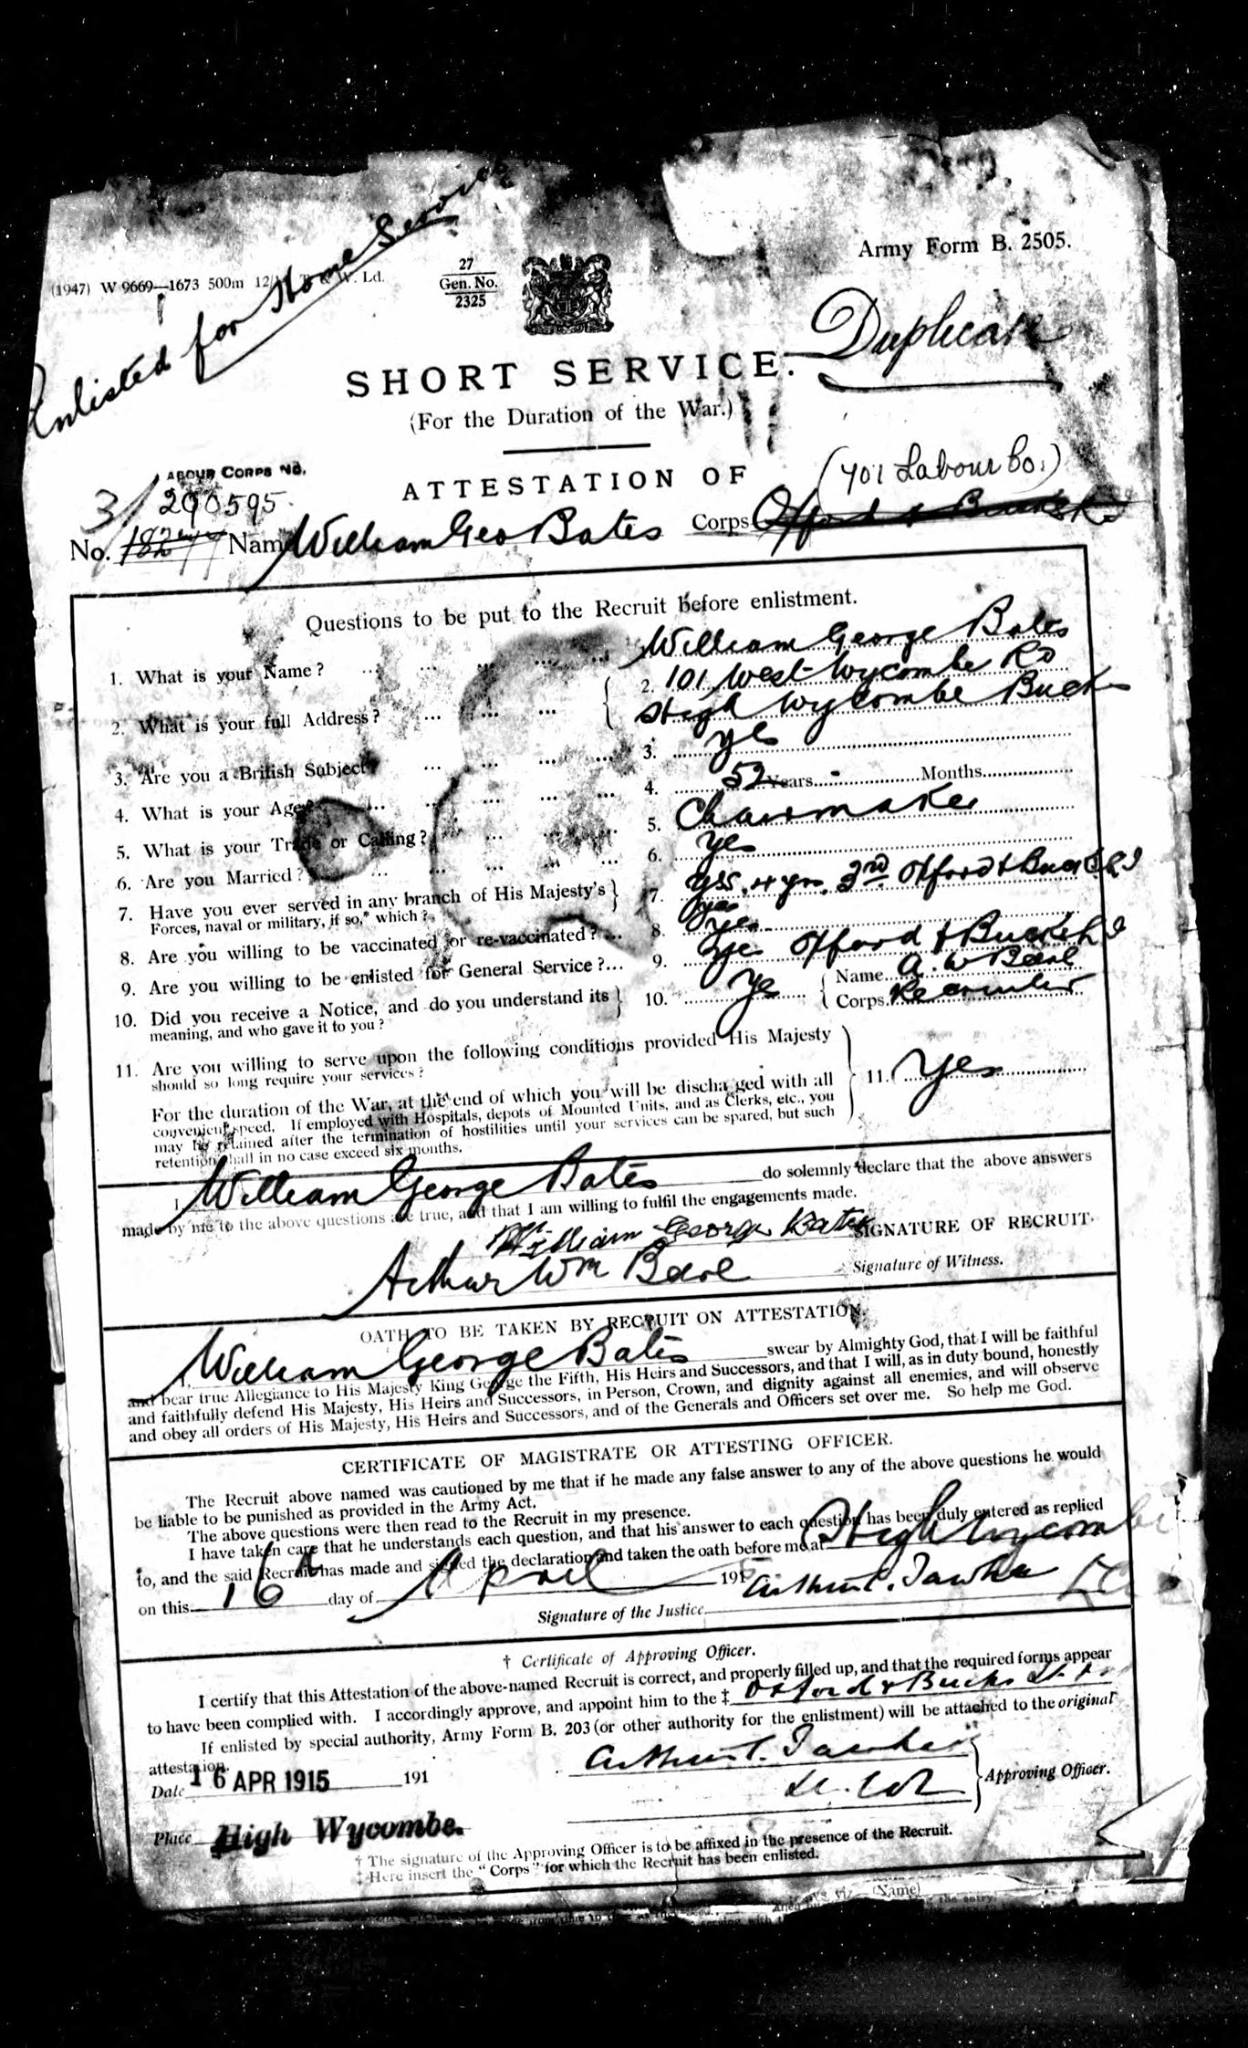 Enlisted for Home Service
Army Form B. 2505.
(1947) W 9669—1673 500m 12/ W. Ld.
27
Gen. No.
2325
Duplicate
SHORT SERVICE.
(For the Duration of the War.)
ABOUR CORPS No.
3/ 290595.
ATTESTATION OF
(401 Labour Co.)
No. Name William Geo Bates Corps Oxford & Bucks
Questions to be put to the Recruit before enlistment.
1. What is your Name? ... William George Bates
2. What is your full Address? ... 2. 101 West Wycombe Rd
High Wycombe Bucks
3. Are you a British Subject? ... 3. Yes
4. What is your Age? ... 4. 52 Years - Months
5. What is your Trade or Calling? ... 5. Chairmaker
6. Are you Married? ... 6. Yes
7. Have you ever served in any branch of His Majesty's
Forces, naval or military, if so,* which?
7. Yes. 4 yrs. 3rd Oxford & Bucks L I
8. Are you willing to be vaccinated or re-vaccinated? ... 8. Yes
9. Are you willing to be enlisted for General Service? ... 9. Yes Oxford & Bucks L I
10. Did you receive a Notice, and do you understand its
meaning, and who gave it to you?
10. Yes Name A. W Beare
Corps Recruiter
11. Are you willing to serve upon the following conditions provided His Majesty
should so long require your services?
For the duration of the War, at the end of which you will be discharged with all
convenient speed. If employed with Hospitals, depots of Mounted Units, and as Clerks, etc., you
may be retained after the termination of hostilities until your services can be spared, but such
retention shall in no case exceed six months.
11. Yes
I William George Bates do solemnly declare that the above answers
made by me to the above questions are true, and that I am willing to fulfil the engagements made.
William George Bates SIGNATURE OF RECRUIT.
Arthur Wm Beare Signature of Witness.
OATH TO BE TAKEN BY RECRUIT ON ATTESTATION.
William George Bates swear by Almighty God, that I will be faithful
and bear true Allegiance to His Majesty King George the Fifth, His Heirs and Successors, and that I will, as in duty bound, honestly
and faithfully defend His Majesty, His Heirs and Successors, in Person, Crown, and dignity against all enemies, and will observe
and obey all orders of His Majesty, His Heirs and Successors, and of the Generals and Officers set over me. So help me God.
CERTIFICATE OF MAGISTRATE OR ATTESTING OFFICER.
The Recruit above named was cautioned by me that if he made any false answer to any of the above questions he would
be liable to be punished as provided in the Army Act.
The above questions were then read to the Recruit in my presence.
I have taken care that he understands each question, and that his answer to each question has been duly entered as replied
to, and the said Recruit has made and signed the declaration and taken the oath before me at High Wycombe
on this 16th day of April 1915
Signature of the Justice
† Certificate of Approving Officer.
I certify that this Attestation of the above-named Recruit is correct, and properly filled up, and that the required forms appear
to have been complied with. I accordingly approve, and appoint him to the ‡ Oxford & Bucks Lt. I.
If enlisted by special authority, Army Form B. 203 (or other authority for the enlistment) will be attached to the original
attestation.
Date 16 APR 1915 191
Lt. Col Approving Officer.
Place High Wycombe.
† The signature of the Approving Officer is to be affixed in the presence of the Recruit.
‡ Here insert the "Corps" for which the Recruit has been enlisted.
(Name)